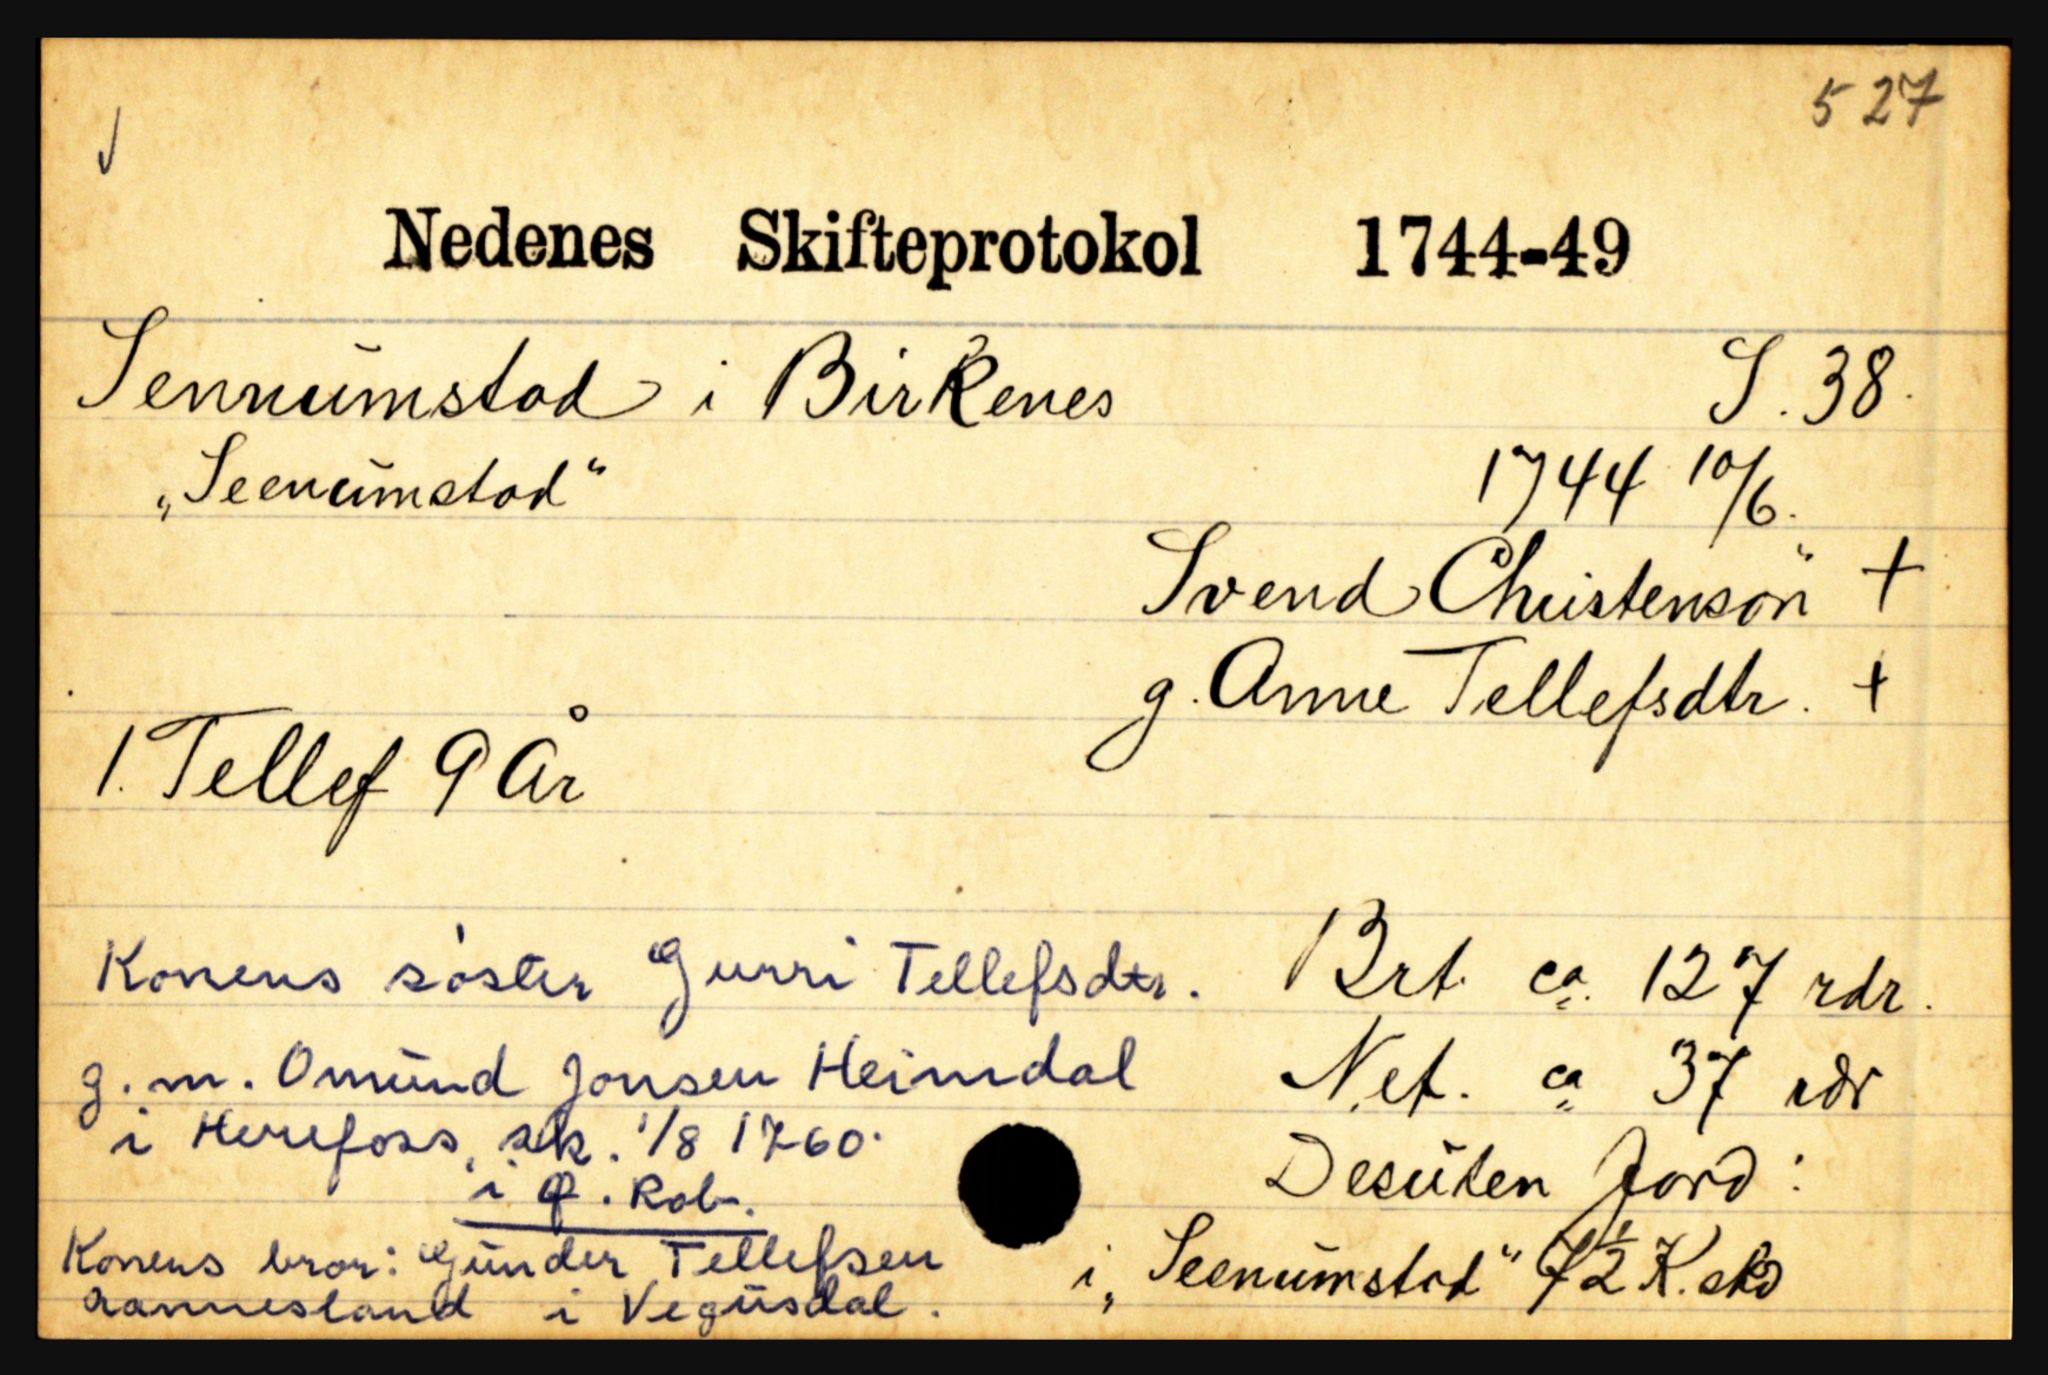 527
Nedenes Skifteprotokol 1744-49
Sennumstad i Birkenes S. 38.
„Seenumstad“ 1744 10/6.
Svend Christensön +
g. Anne Tellefsdtr. +
1. Tellef 9 År
Konens söster Gurri Tellefsdtr. Brt. ca. 127 rdr.
g. m. Omund Jonsen Heimdal Net. ca 37 rdr
i Herefoss, sk. 1/8 1760. Desuten Jord:
i . Rob.
Konens bror: Gunder Tellefsen i „Seenumstad“ 7½ K. skd
aannesland i Vegusdal.